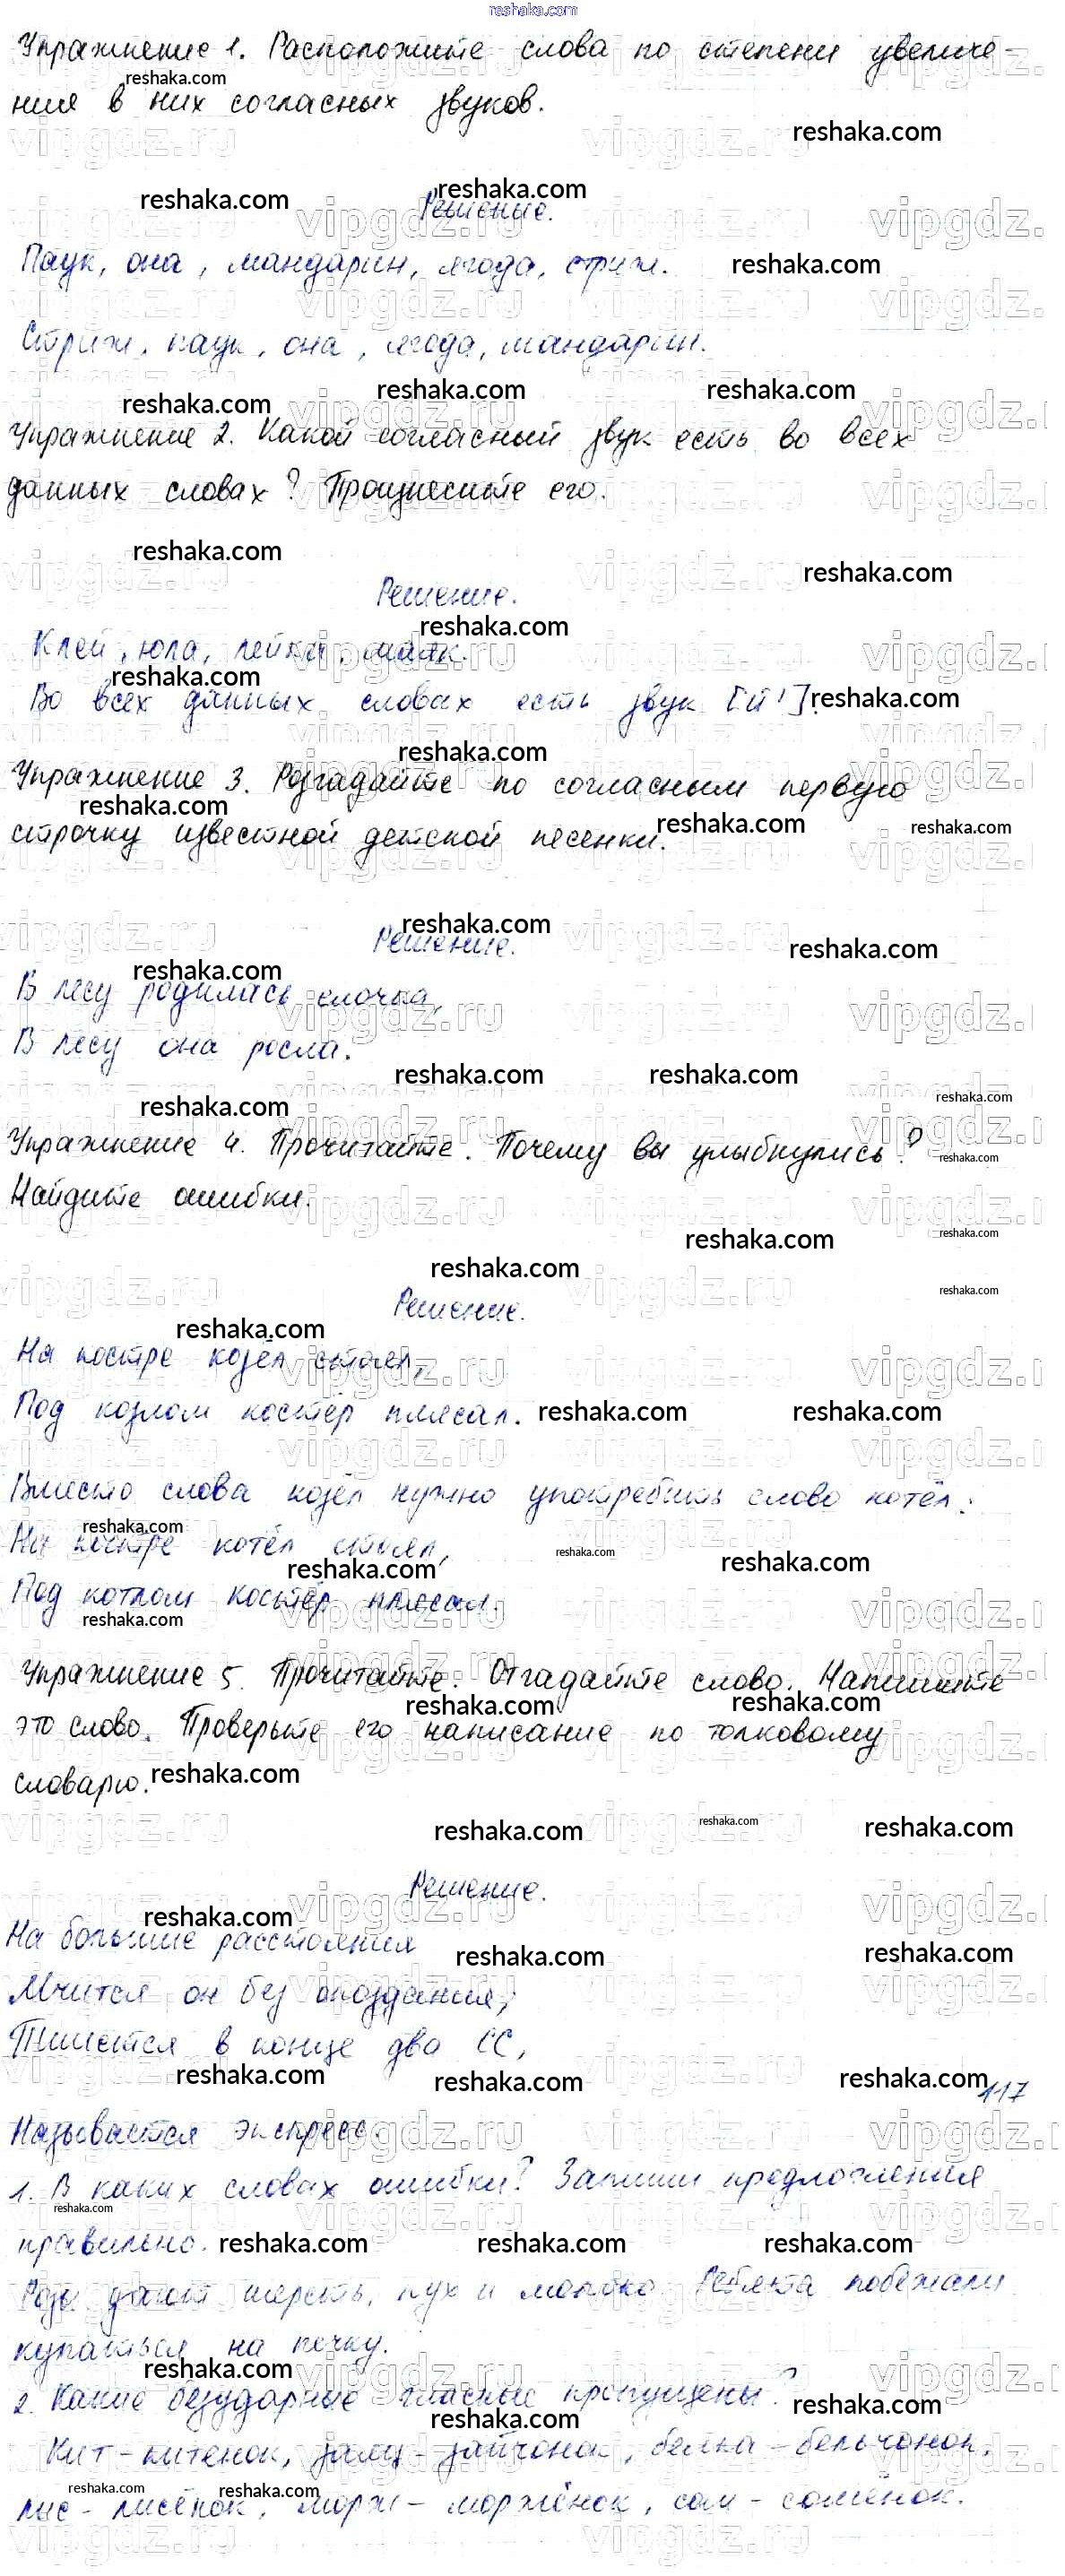 reshaka.com
Упражнение 1. Расположите слова по степени увеличе-
ния в них согласных звуков.
Решение.
Паук, она, мандарин, ягода, стриж.
Стриж, паук, она, ягода, мандарин.
Упражнение 2. Какой согласный звук есть во всех
данных словах? Произнесите его.
Решение.
Клей, юла, лейка, маяк.
Во всех данных словах есть звук [й'].
Упражнение 3. Разгадайте по согласным первую
строчку известной детской песенки.
Решение.
В лесу родилась елочка,
В лесу она росла.
Упражнение 4. Прочитайте. Почему вы улыбнулись?
Найдите ошибки.
Решение.
На костре козёл стоял,
Под козлом костёр плясал.
Вместо слова козёл нужно употребить слово котёл:
На костре котёл стоял,
Под котлом костёр плясал.
Упражнение 5. Прочитайте. Отгадайте слово. Напишите
это слово. Проверьте его написание по толковому
словарю.
Решение.
На большие расстояния
Мчится он без опоздания,
Пишется в конце два СС,
117
Называется экспресс.
1. В каких словах ошибки? Запиши предложения
правильно.
дают шерсть, пух и молоко. Ребята побежали
купаться на печку.
2. Какие безударные гласные пропущены?
Кит - китенок, заяц - зайчонок, белка - бельчонок,
лис - лисёнок, морж - моржёнок, сом - сомёнок.